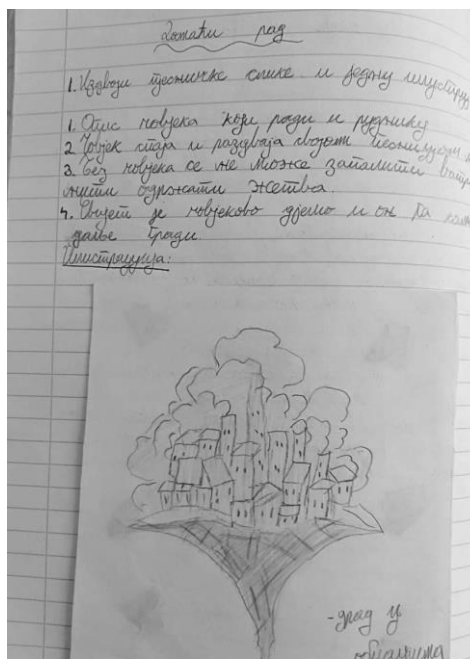 Домаћи рад
1. Издвоји пјесничке слике и једну илуструј
1. Опис човјека који ради у руднику
2 Човјек спаја и раздваја својом
3. Без човјека се не може запалити
нити одржати жетва.
4. Свијет је човјеково дјело и он га
даље гради.
Илустрација:
-град у
облацима